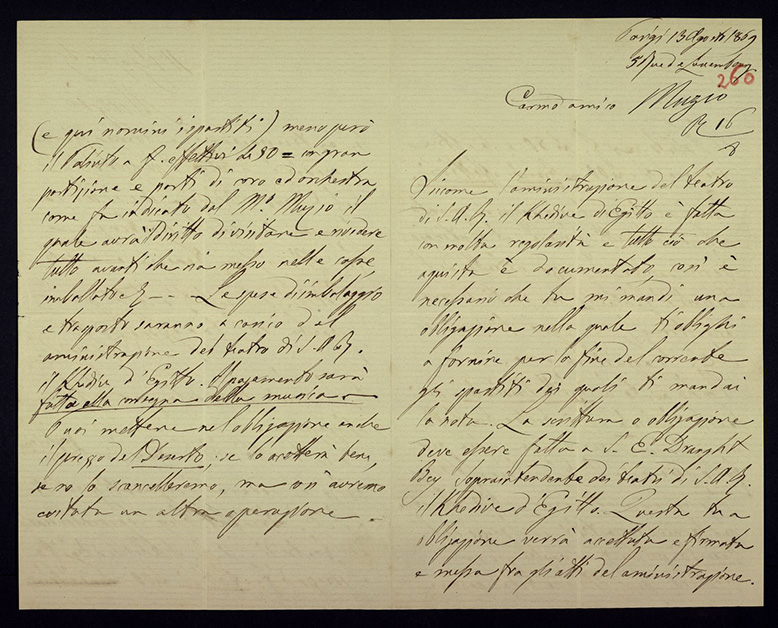 Parigi 13 Agosto 1869
5 Rue de Luxembourg
260
Carmo amico Muzio
R 16
8
Siccome l'aministrazione del teatro
di S. A. R. il Khedive di Egitto è fatta
con molta regolarità e tutto ciò che
aquista è documentato, così è
necessario che tu mi mandi una
obligazione nella quale ti oblighi
a fornire per la fine del corrente
gli spartiti dei quali ti mandai
la nota. La scrittura o obligazione
deve essere fatta a S. E. Draneht
Bey Sopraintendente dei teatri di S. A. R.
il Khedive d'Egitto. Questa tua
obligazione verrà accettata e firmata
e messa fra gli atti del aministrazione.
(e qui nomini i spartiti) meno però
il Poliuto a f. effettivi da 90 = con gran
partizione e parti di coro ed orchestra
come fu indicato dal Mo. Muzio il
quale avrà il diritto di visitare e rivedere
tutto avanti che sia messo nelle casse
imballato &. — — Le spese di imbalaggio
e trasporto saranno a carico del
aministrazione del teatro di S. A. R.
il Khedive d'Egitto. Il pagamento sarà
fatto alla consegna della musica —
Puoi mettere nel obligazione anche
il prezzo del Deserto; se lo accetterà bene,
se no lo scancelleremo, ma così avremo
evitata un altra operazione. —